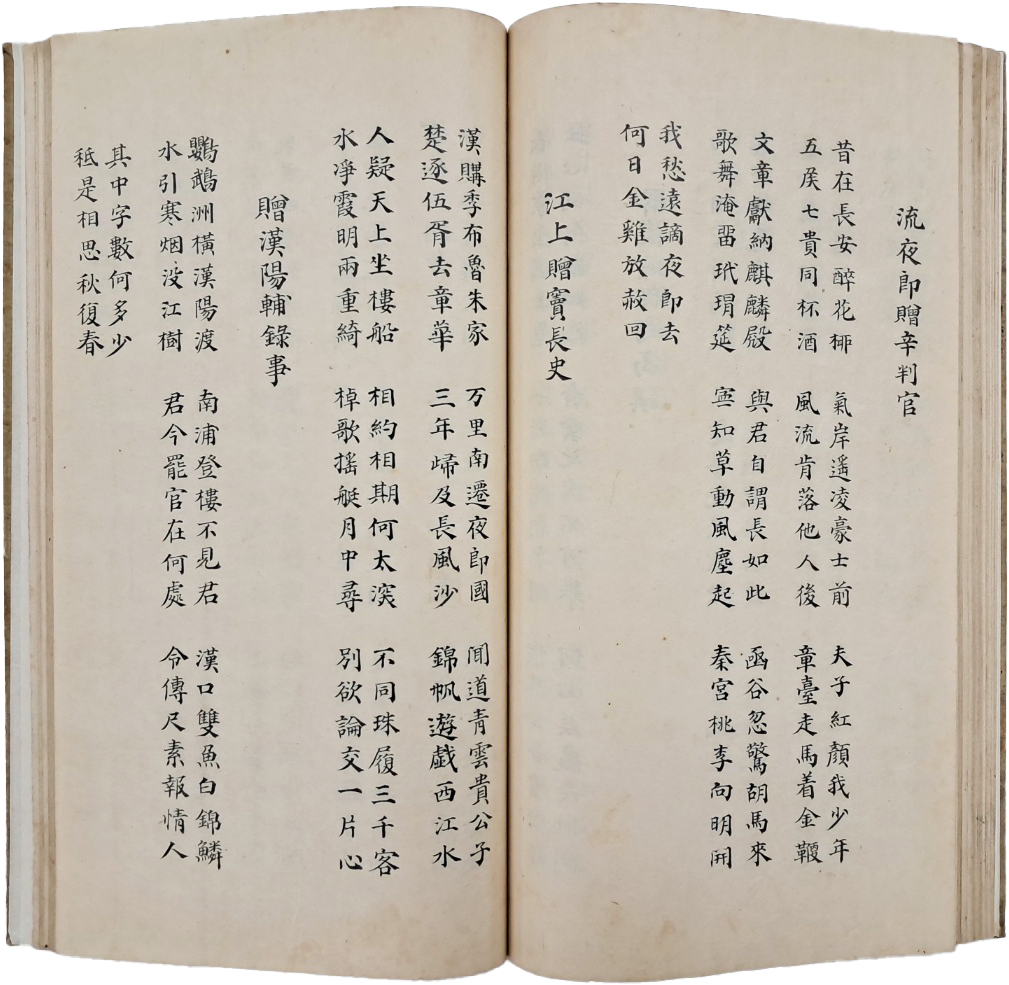 流夜郎贈辛判官
昔在長安醉花栁
五矦七貴同杯酒
氣岸遥凌豪士前
風流肯落他人後
夫子紅顏我少年
章臺走馬着金鞭
文章獻納麒麟殿
歌舞淹畱玳瑁筵
與君自謂長如此
寧知草動風塵起
函谷忽驚胡馬來
秦宮桃李向明開
我愁遠謫夜郎去
何日金雞放赦回
江上贈竇長史
漢購季布魯朱家
楚逐伍胥去章華
万里南遷夜郎國
三年歸及長風沙
聞道青雲貴公子
錦帆遊戱西江水
人疑天上坐樓船
水淨霞明兩重綺
相約相期何太深
棹歌摇艇月中尋
不同珠履三千客
別欲論交一片心
贈漢陽輔錄事
鸚鵡洲橫漢陽渡
水引寒烟没江樹
南浦登樓不見君
君今罷官在何處
漢口雙魚白錦鱗
令傳尺素報情人
其中字數何多少
秪是相思秋復春